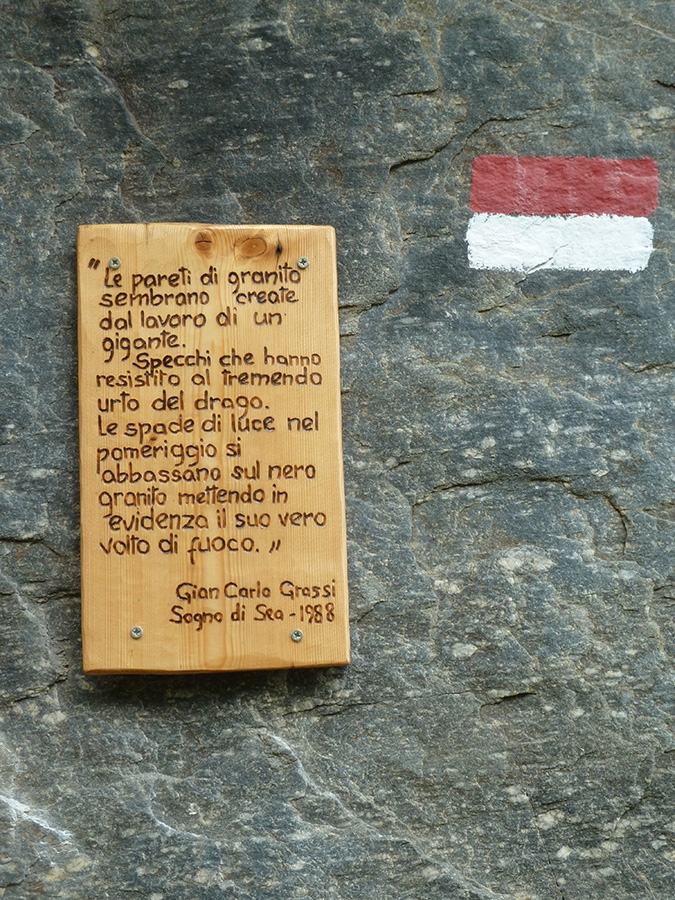 "Le pareti di granito
sembrano create
dal lavoro di un
gigante.
Specchi che hanno
resistito al tremendo
urto del drago.
Le spade di luce nel
pomeriggio si
abbassano sul nero
granito mettendo in
evidenza il suo vero
volto di fuoco. "
Gian Carlo Grassi
Sogno di Sea - 1988